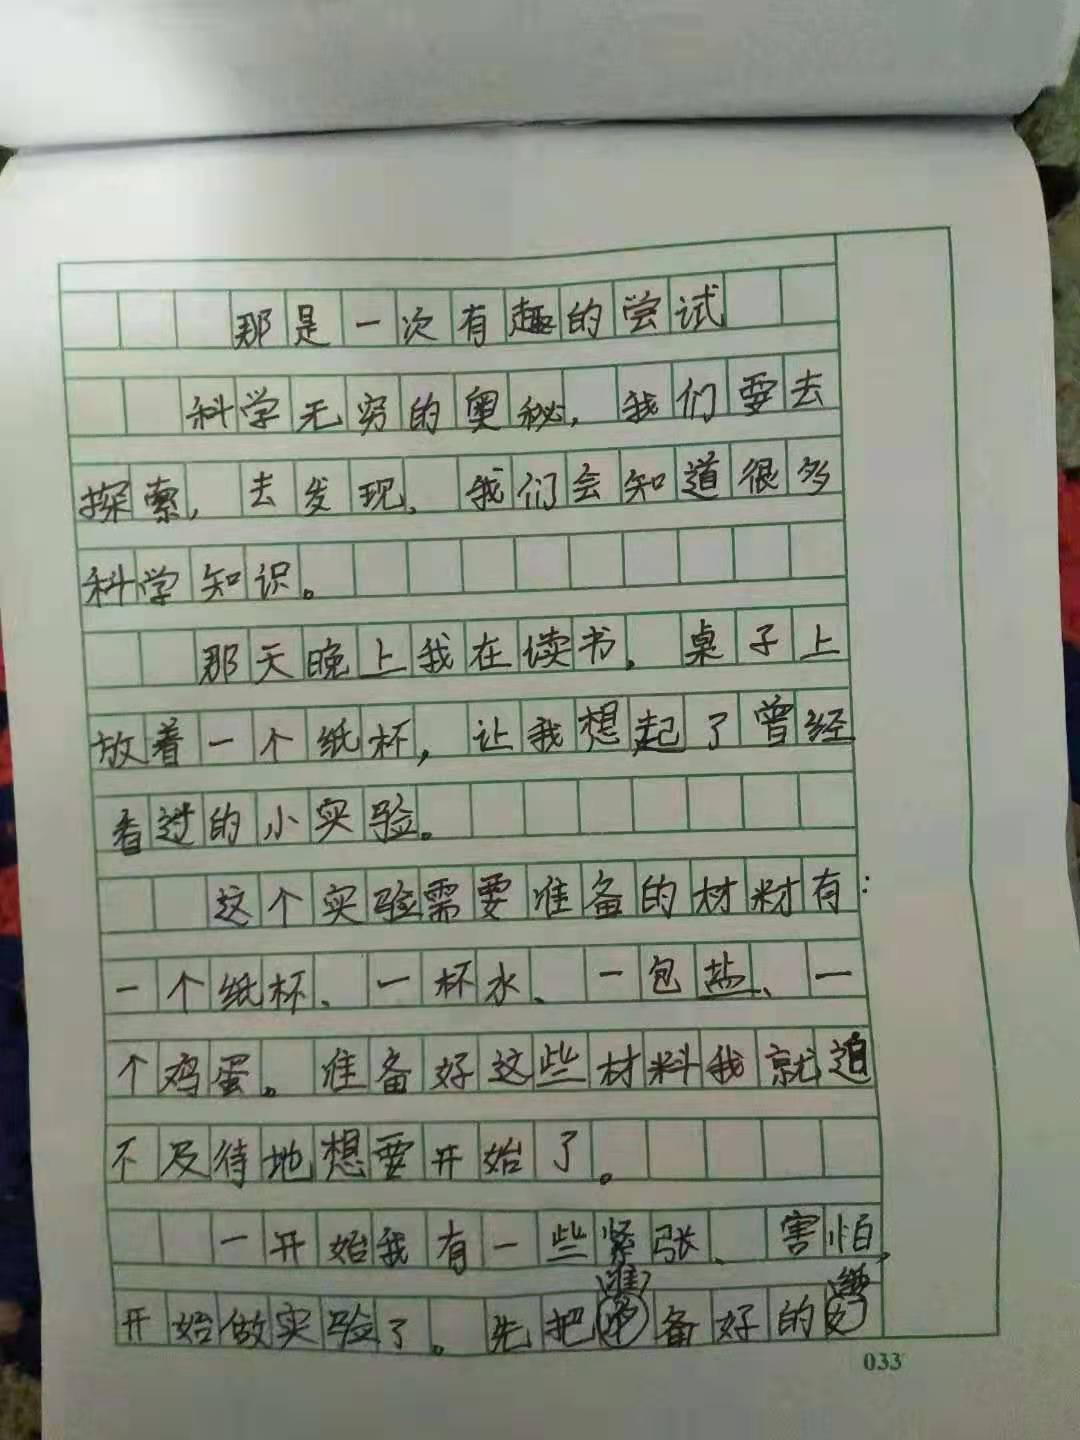 那是一次有趣的尝试
科学无穷的奥秘,我们要去
探索,去发现,我们会知道很多
科学知识。
那天晚上我在读书,桌子上
放着一个纸杯,让我想起了曾经
看过的小实验。
这个实验需要准备的材料有:
一个纸杯、一杯水、一包盐、一
个鸡蛋。准备好这些材料我就迫
不及待地想要开始了。
一开始我有一些紧张、害怕,
开始做实验了。先把准备好的纸
033